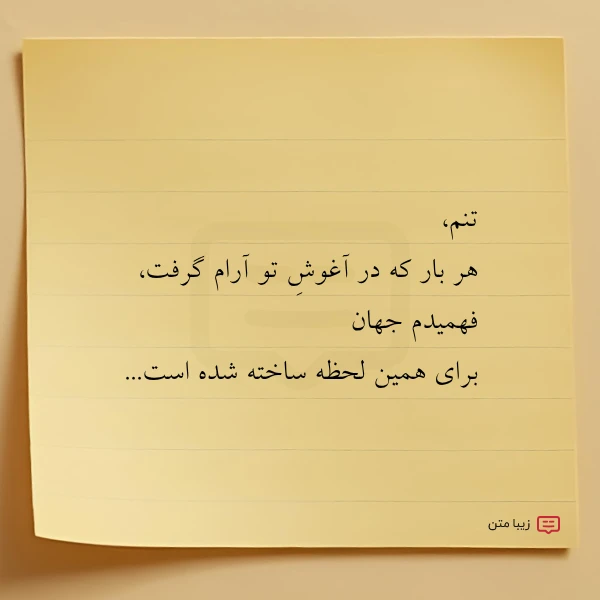 تنم،
هر بار که در آغوشِ تو آرام گرفت،
فهمیدم جهان
برای همین لحظه ساخته شده است...
زیبا متن